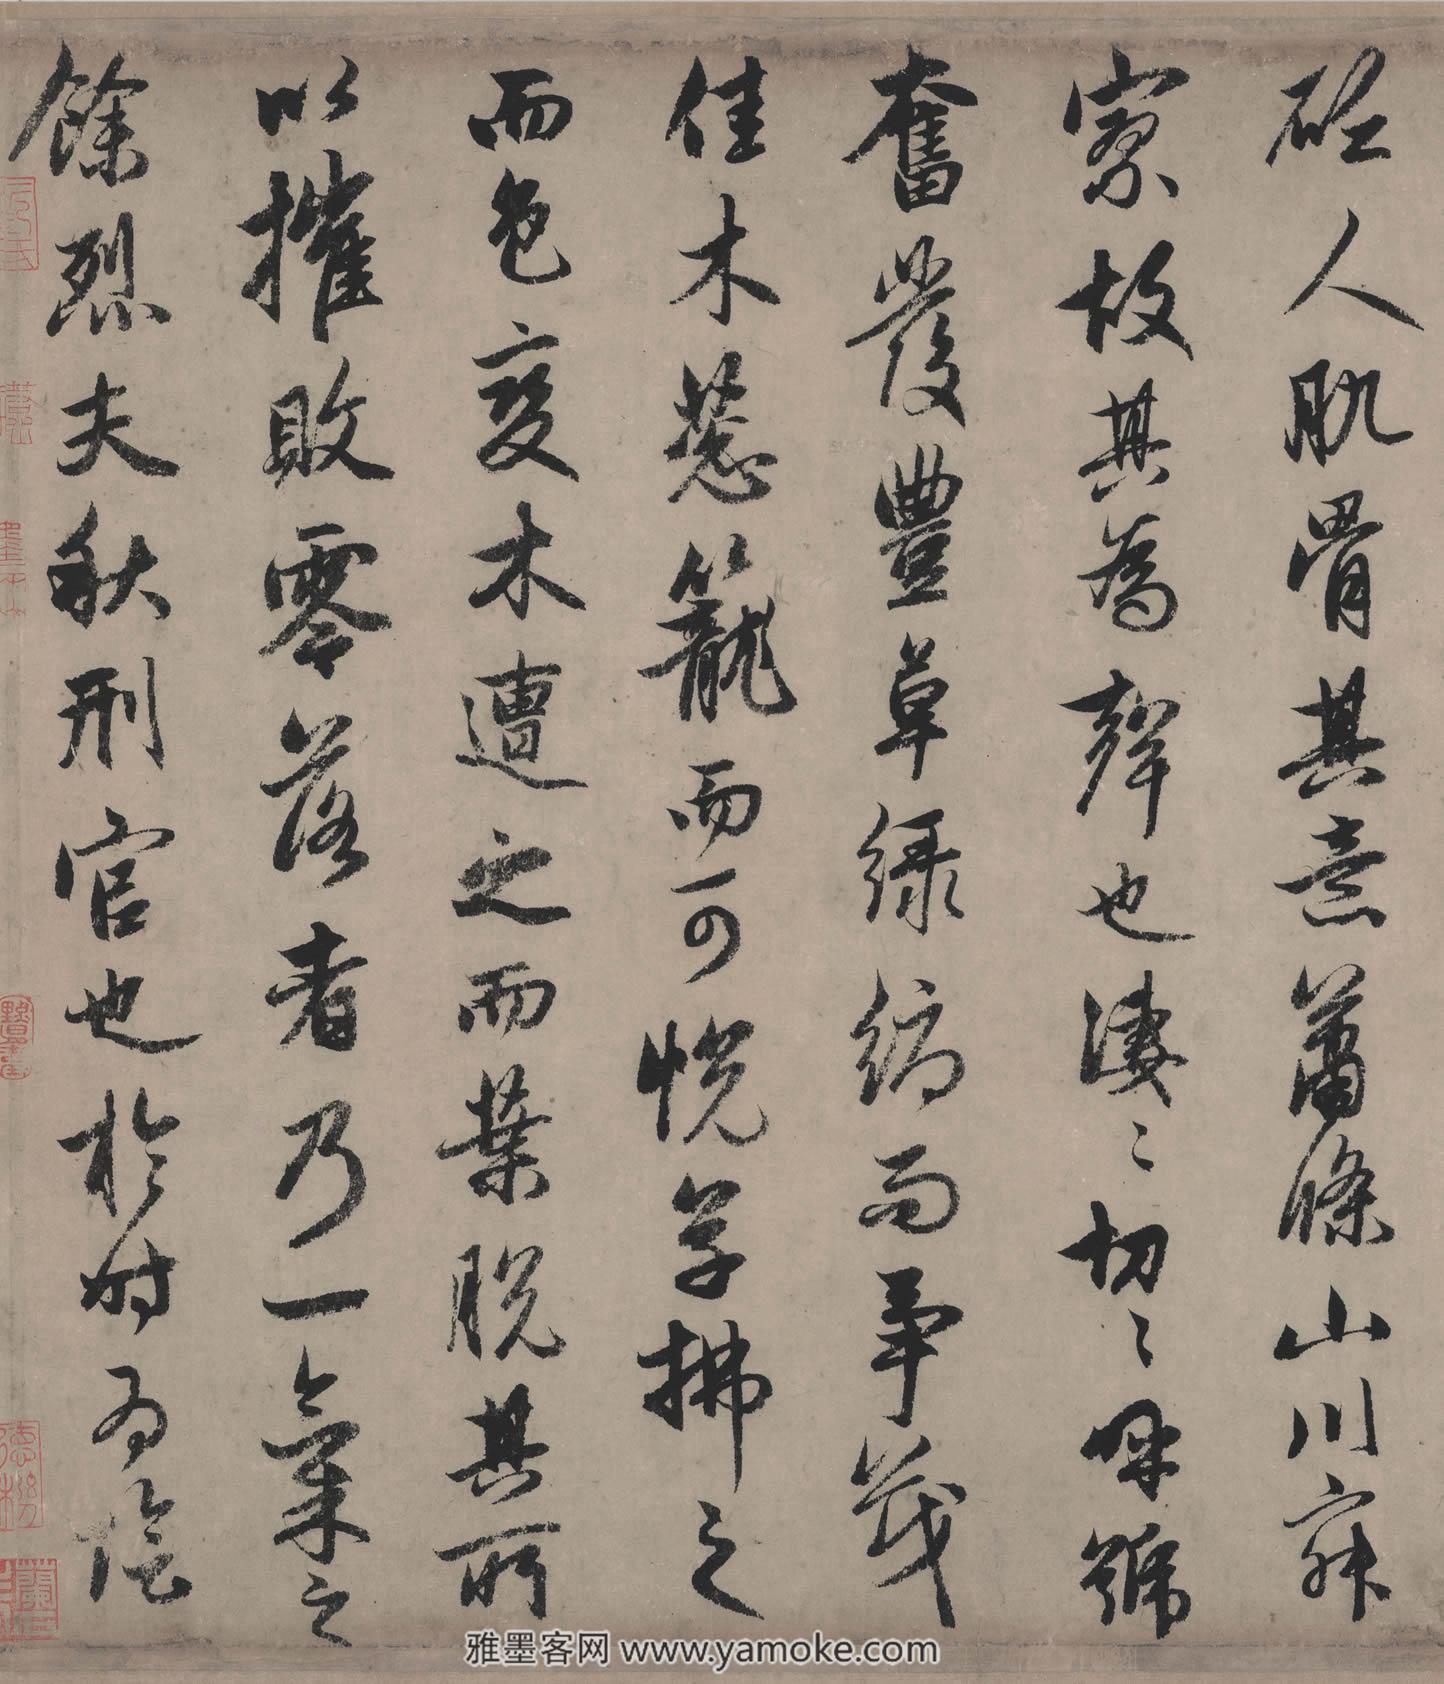 砭人肌骨其意蕭條山川寂
寥故其為聲也淒〻切〻呼號
奮發豐草綠縟而爭茂
佳木蔥籠而可悅草拂之
而色變木遭之而葉脫其所
以摧敗零落者乃一氣之
餘烈夫秋刑官也於時為陰
雅墨客网 www.yamoke.com